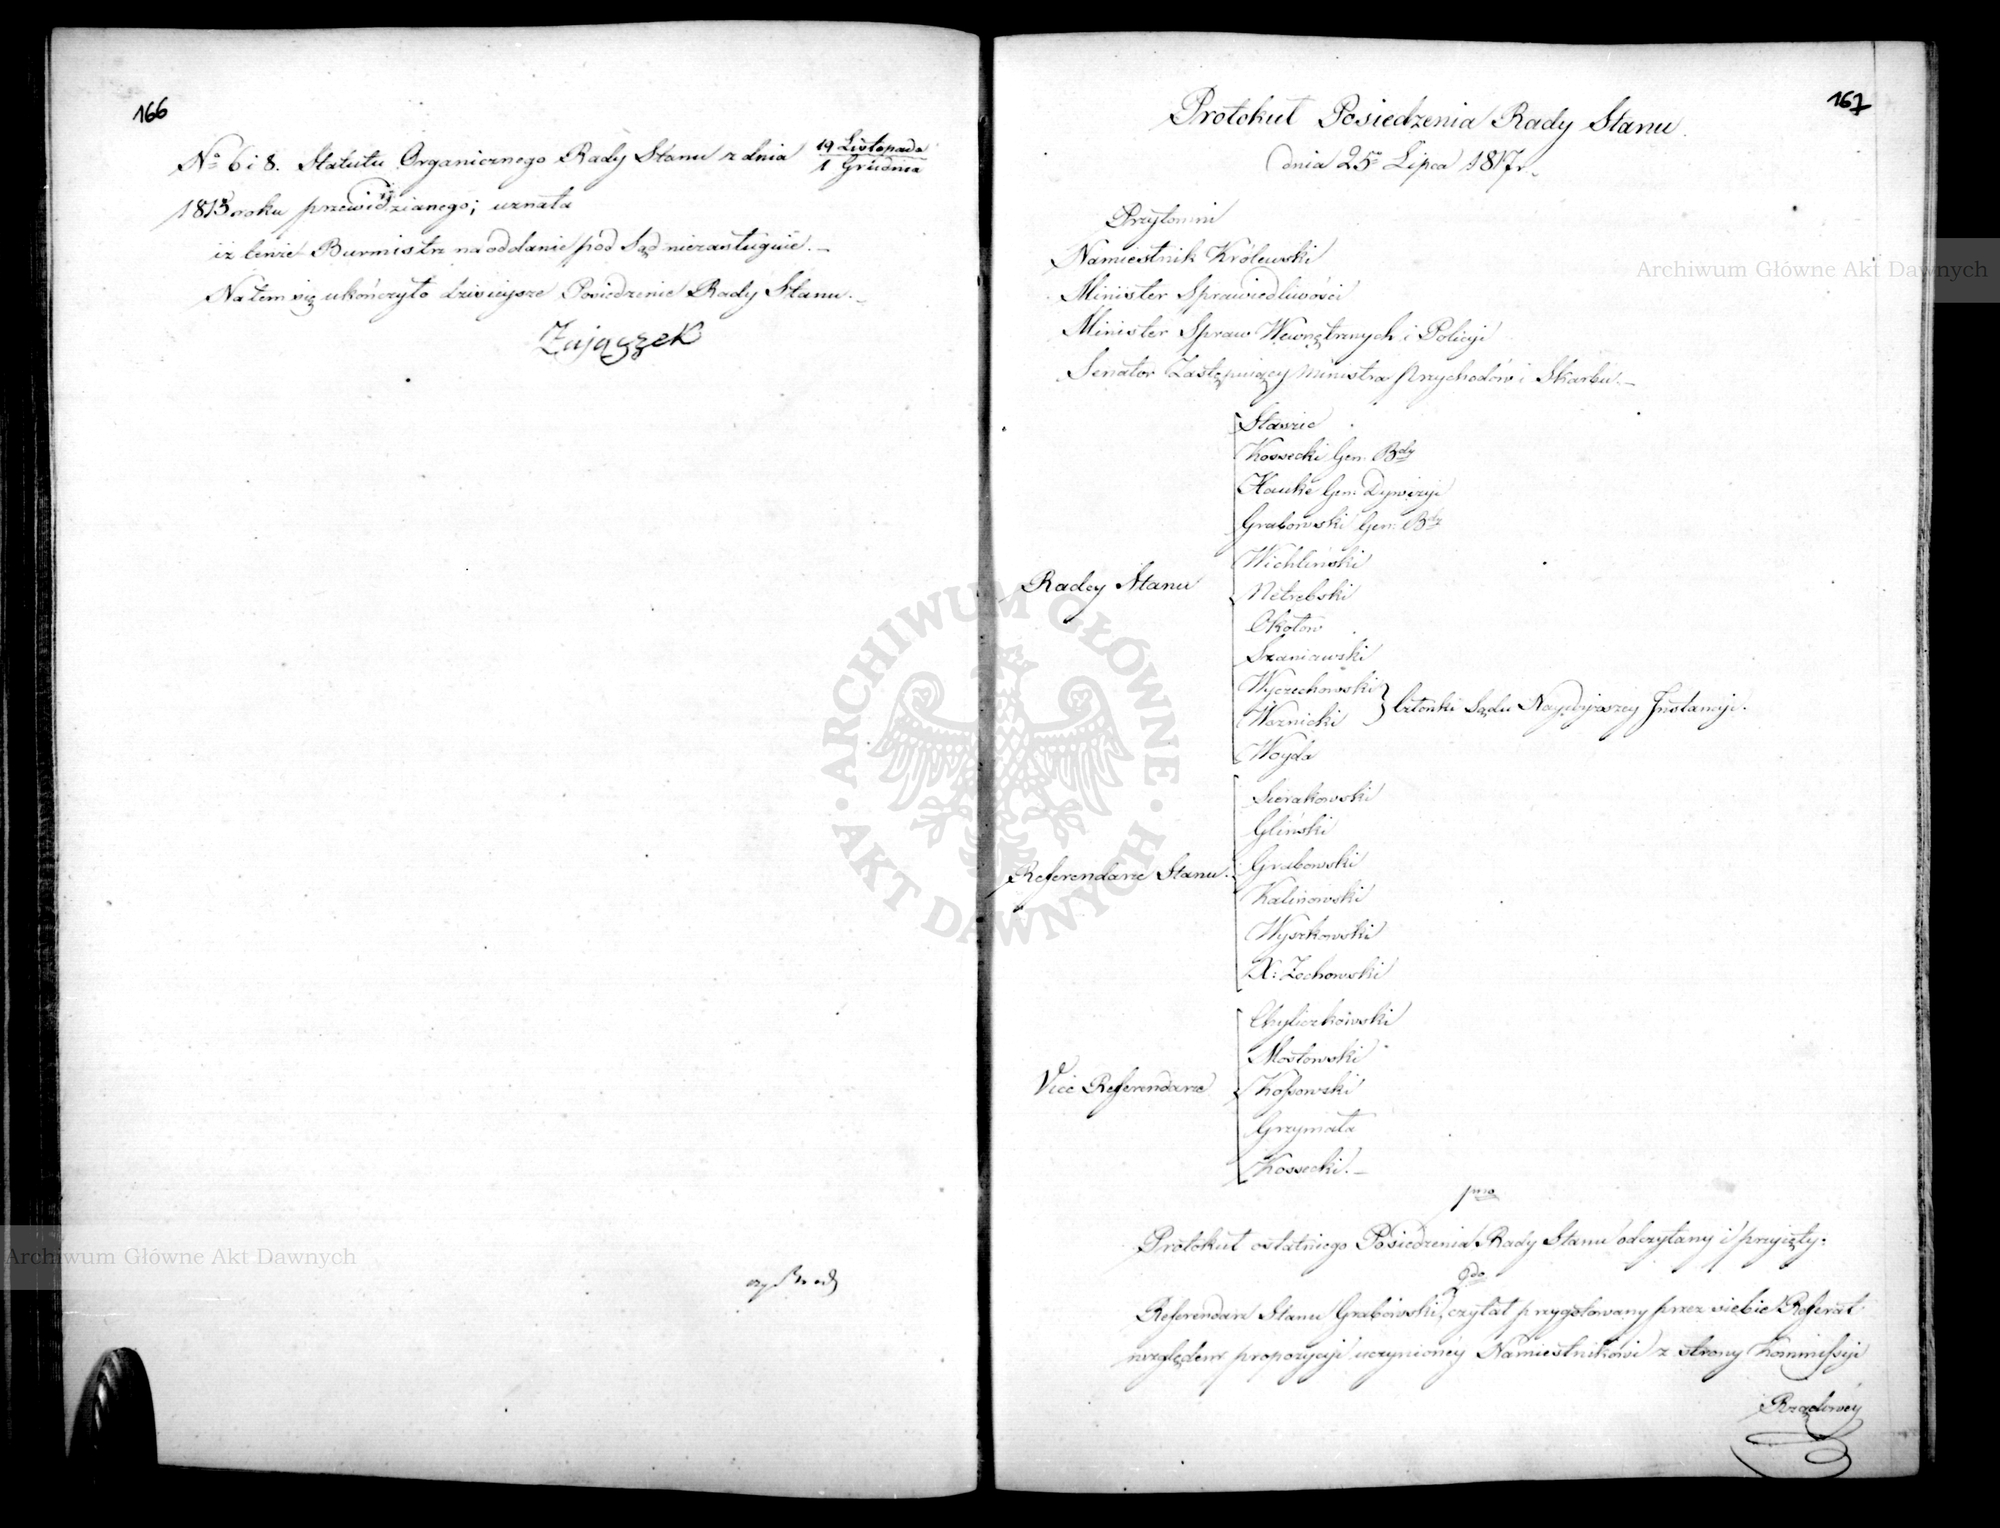 166
No 6 i 8. Statutu Organicznego Rady Stanu z dnia 19 Listopada / 1 Grudnia
1815 roku przewidzianego; uznała
iż tenże Burmistrz na oddanie pod Sąd niezasługuie. —
Na tem się ukończyło dzisieysze Posiedzenie Rady Stanu. —
Zajączek
167
Protokuł Posiedzenia Rady Stanu.
dnia 25o Lipca 1817 r.
Przytomni
Namiestnik Królewski
Minister Sprawiedliwości
Minister Spraw Wewnętrznych i Policyi
Senator Zastępuiący Ministra Przychodów i Skarbu. —
Radcy Stanu
Staszic
Kossecki Gen. Bdy
Hauke Gen. Dywizyi
Grabowski Gen. Bdy
Wichliński
Netrebski
Okołów
Szaniawski
Wyczechowski
Woznicki } Członki Sądu Naywyższey Instancyi.
Woyda
Referendarze Stanu.
Sierakowski
Gliński
Grabowski
Kalinowski
Wyszkowski
X: Zochowski
Vice Referendarze
Chyliczkowski
Mostowski
Kossowski
Grzymała
Kossecki. —
1mo
Protokuł ostatniego Posiedzenia Rady Stanu odczytany i przyięty.
2do
Referendarz Stanu Grabowski, czytał przygotowany przez siebie Referat
względem propozycyi uczynioney Namiestnikowi z strony Kommissyi
Rządowey
Archiwum Główne Akt Dawnych
Archiwum Główne Akt Dawnych
ARCHIWUM GŁÓWNE AKT DAWNYCH